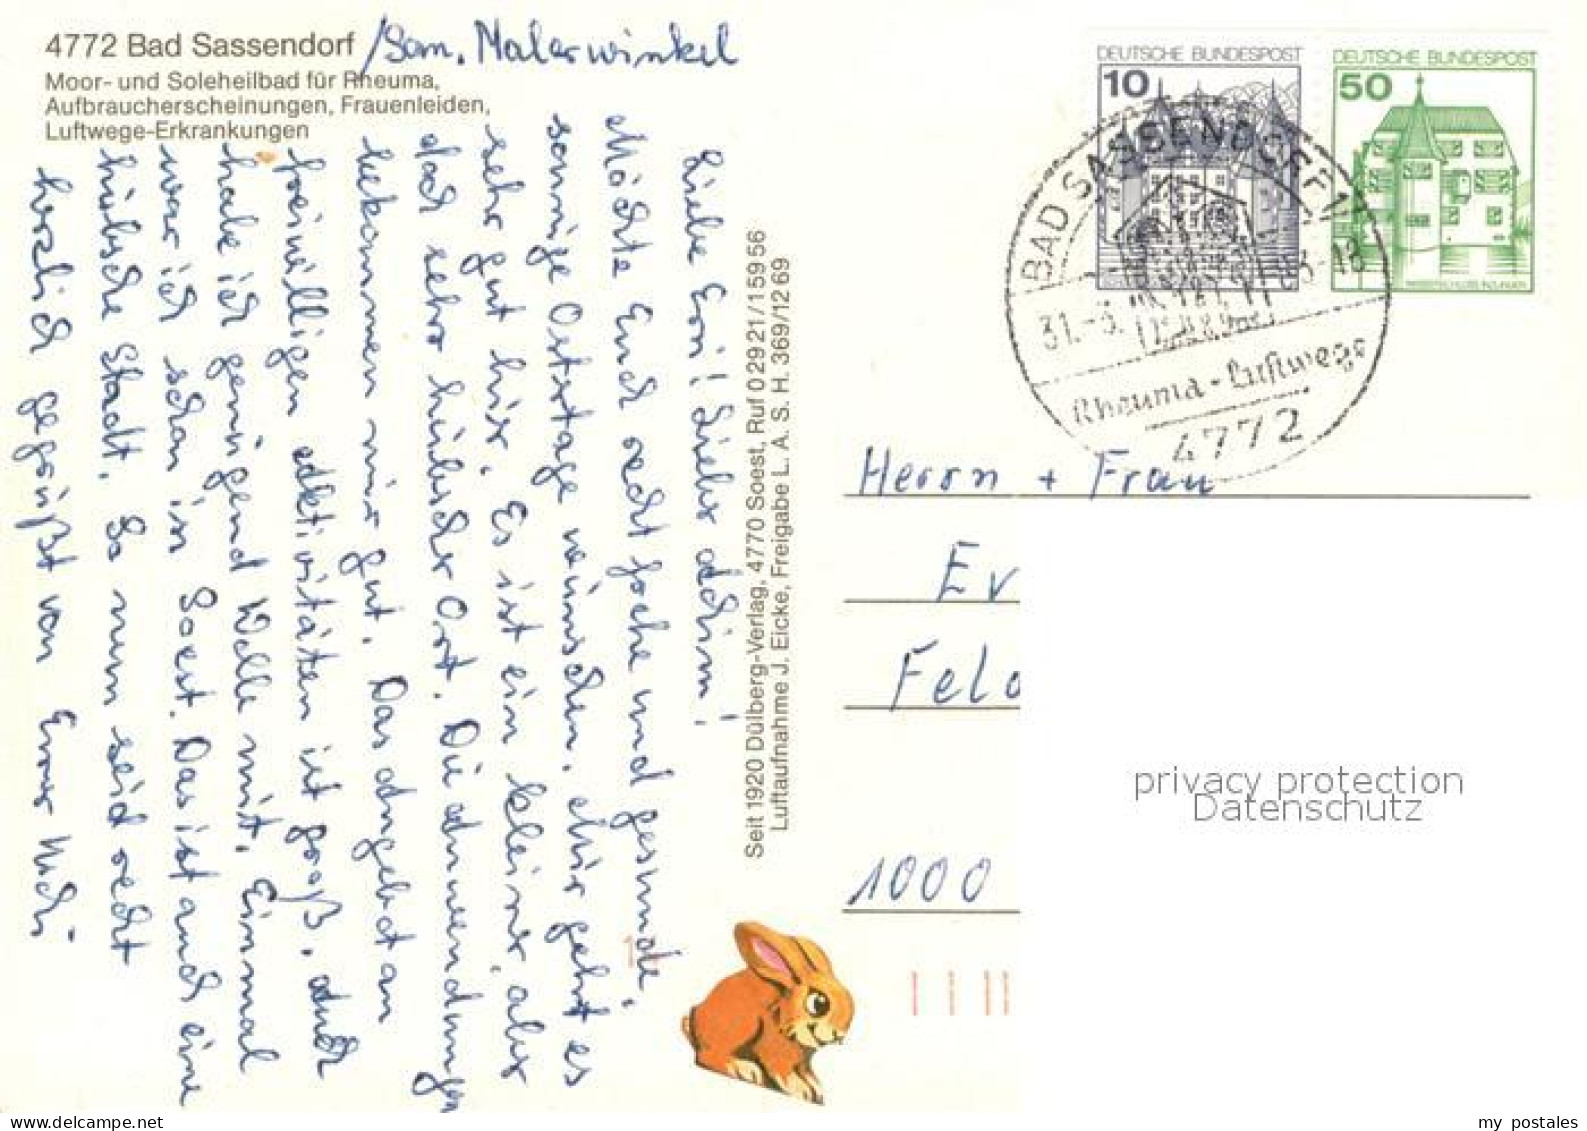 4772 Bad Sassendorf /San. Malerwinkel
Moor- und Soleheilbad für Rheuma,
Aufbraucherscheinungen, Frauenleiden,
Luftwege-Erkrankungen
Liebe Evi! Lieber Achim!
Möchte Euch recht frohe und gesunde,
sonnige Ostertage wünschen. Mir geht es
sehr gut hier. Es ist ein kleiner, aber
doch sehr hübscher Ort. Die Anwendungen
bekommen mir gut. Das Angebot an
freiwilligen Aktivitäten ist groß. Auch
habe ich genügend Wolle mit. Einmal
war ich schon in Soest. Das ist auch eine
hübsche Stadt. So nun seid recht
herzlich gegrüßt von Eurer
Seit 1920 Dülberg-Verlag, 4770 Soest, Ruf 02921/15956
Luftaufnahme J. Eicke, Freigabe L. A. S. H. 369/1269
DEUTSCHE BUNDESPOST
10
DEUTSCHE BUNDESPOST
50
BAD SASSENDORF 1
31.-3. 83-18
Rheuma - Luftwege
4772
Herrn + Frau
Ev
Feld
1000
privacy protection
Datenschutz
my postales